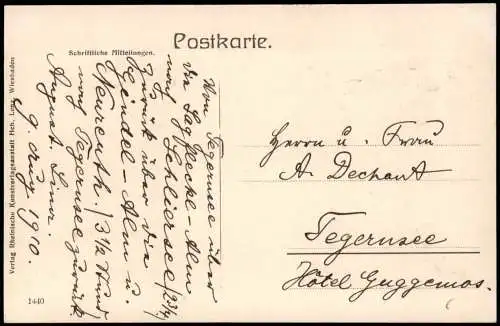 Postkarte.
Schriftliche Mitteilungen.
Von Tegernsee über
die Sagflecke-Alm
nach Schliersee (2 3/4)
Zurück über die
Gindel-Alm u.
Neureuth. (3 1/2 Stund)
nach Tegernsee zurück.
August
9. Aug 1910.
Herrn u. Frau
A. Dechant
Tegernsee
Hôtel Guggemos.
Verlag Rheinische Kunstverlagsanstalt Hch. Wiesbaden
1440